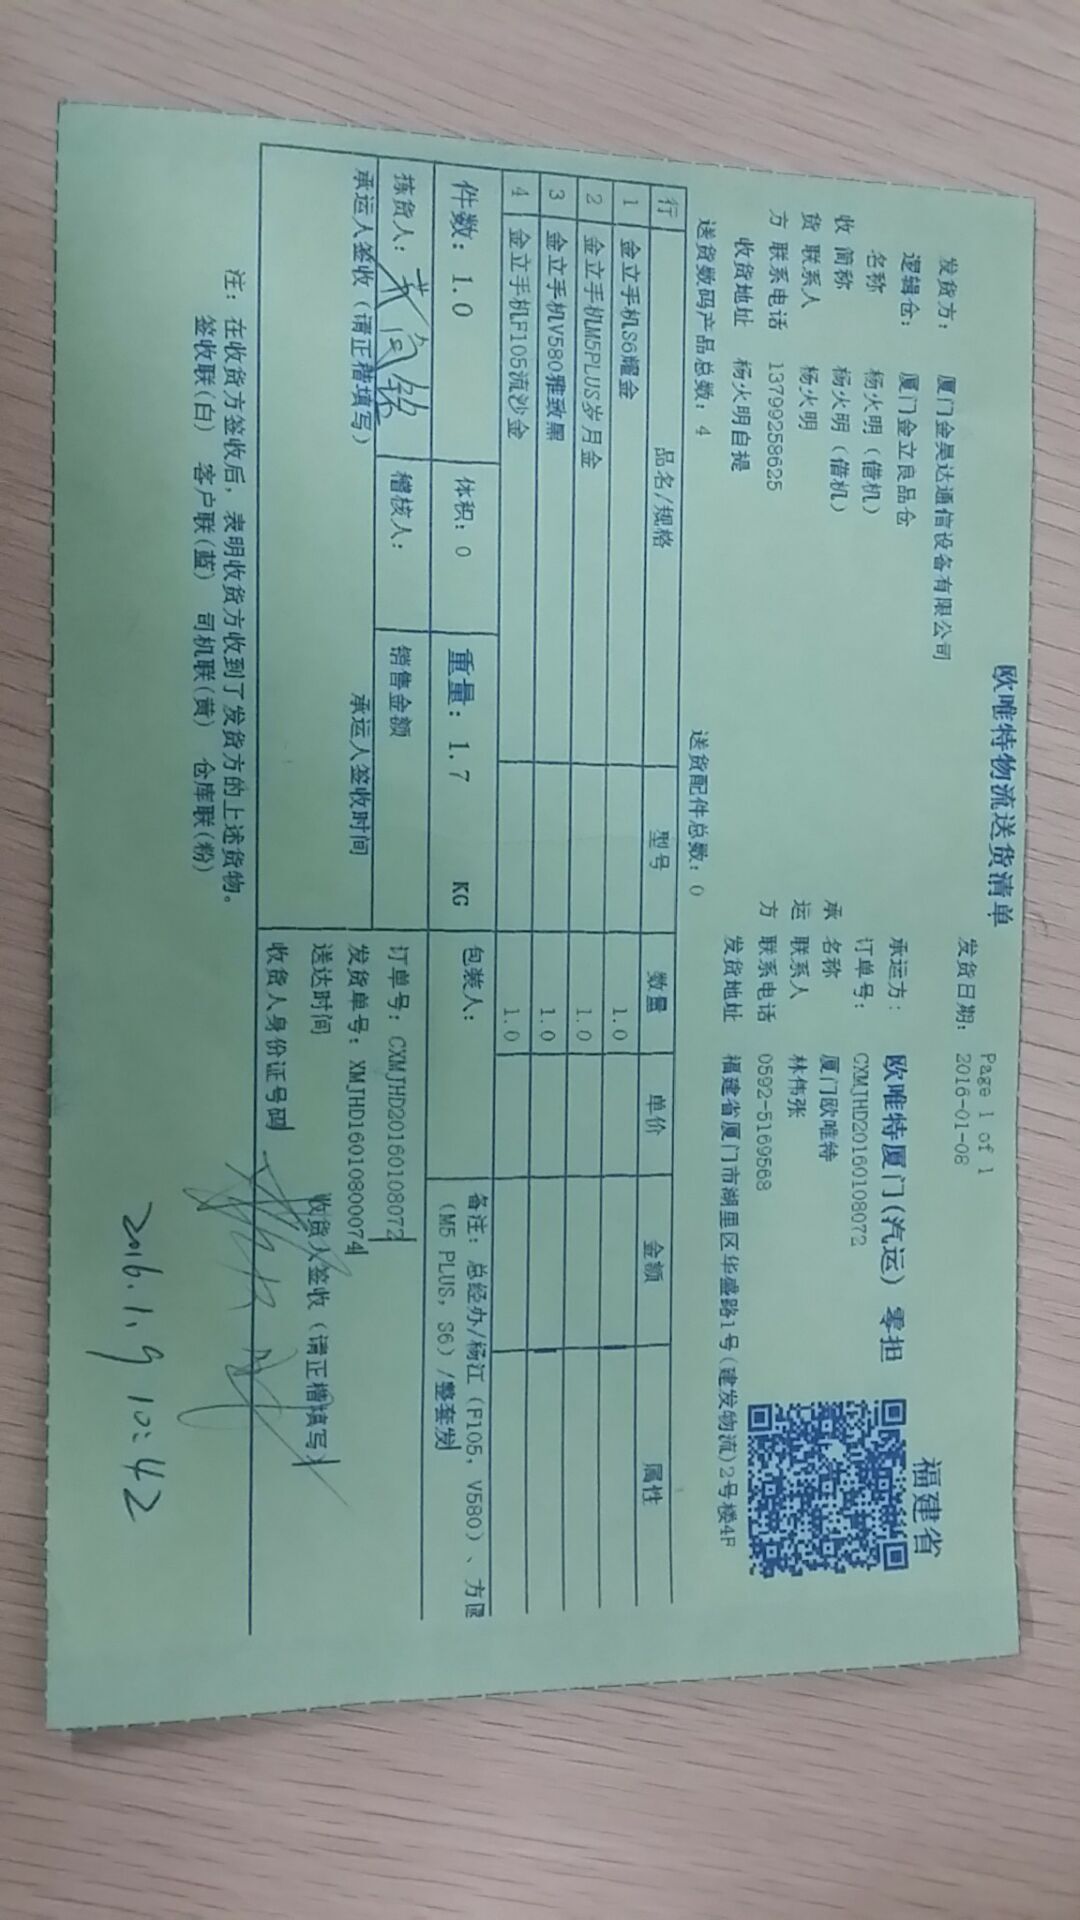 欧唯特物流送货清单
Page 1 of 1
发货日期: 2016-01-08
福建省
发货方: 厦门金昊达通信设备有限公司
承运方: 欧唯特厦门(汽运) 零担
逻辑仓: 厦门金立良品仓
订单号: CXMJHD20160108072
收货方 名称 杨火明(借机)
承运方 名称 厦门欧唯特
简称 杨火明(借机)
联系人 林伟张
联系人 杨火明
联系电话 0592-5169568
联系电话 13799258625
发货地址 福建省厦门市湖里区华盛路1号(建发物流)2号楼4F
收货地址 杨火明自提
送货数码产品总数: 4 送货配件总数: 0
行 品名/规格 型号 数量 单价 金额 属性
1 金立手机S6耀金 1.0
2 金立手机M5PLUS岁月金 1.0
3 金立手机V580雅致黑 1.0
4 金立手机F105流沙金 1.0
件数: 1.0 体积: 0 重量: 1.7 KG 包装人: 备注: 总经办/杨江(F105, V580)、方
(M5 PLUS, S6)/整套发
拣货人: 稽核人: 销售金额 订单号: CXMJHD20160108072
承运人签收(请正楷填写) 承运人签收时间 发货单号: XMJHD16010800074
送达时间 收货人签收(请正楷填写)
收货人身份证号码
2016.1.9 10:42
注: 在收货方签收后, 表明收货方收到了发货方的上述货物。
签收联(白) 客户联(蓝) 司机联(黄) 仓库联(粉)